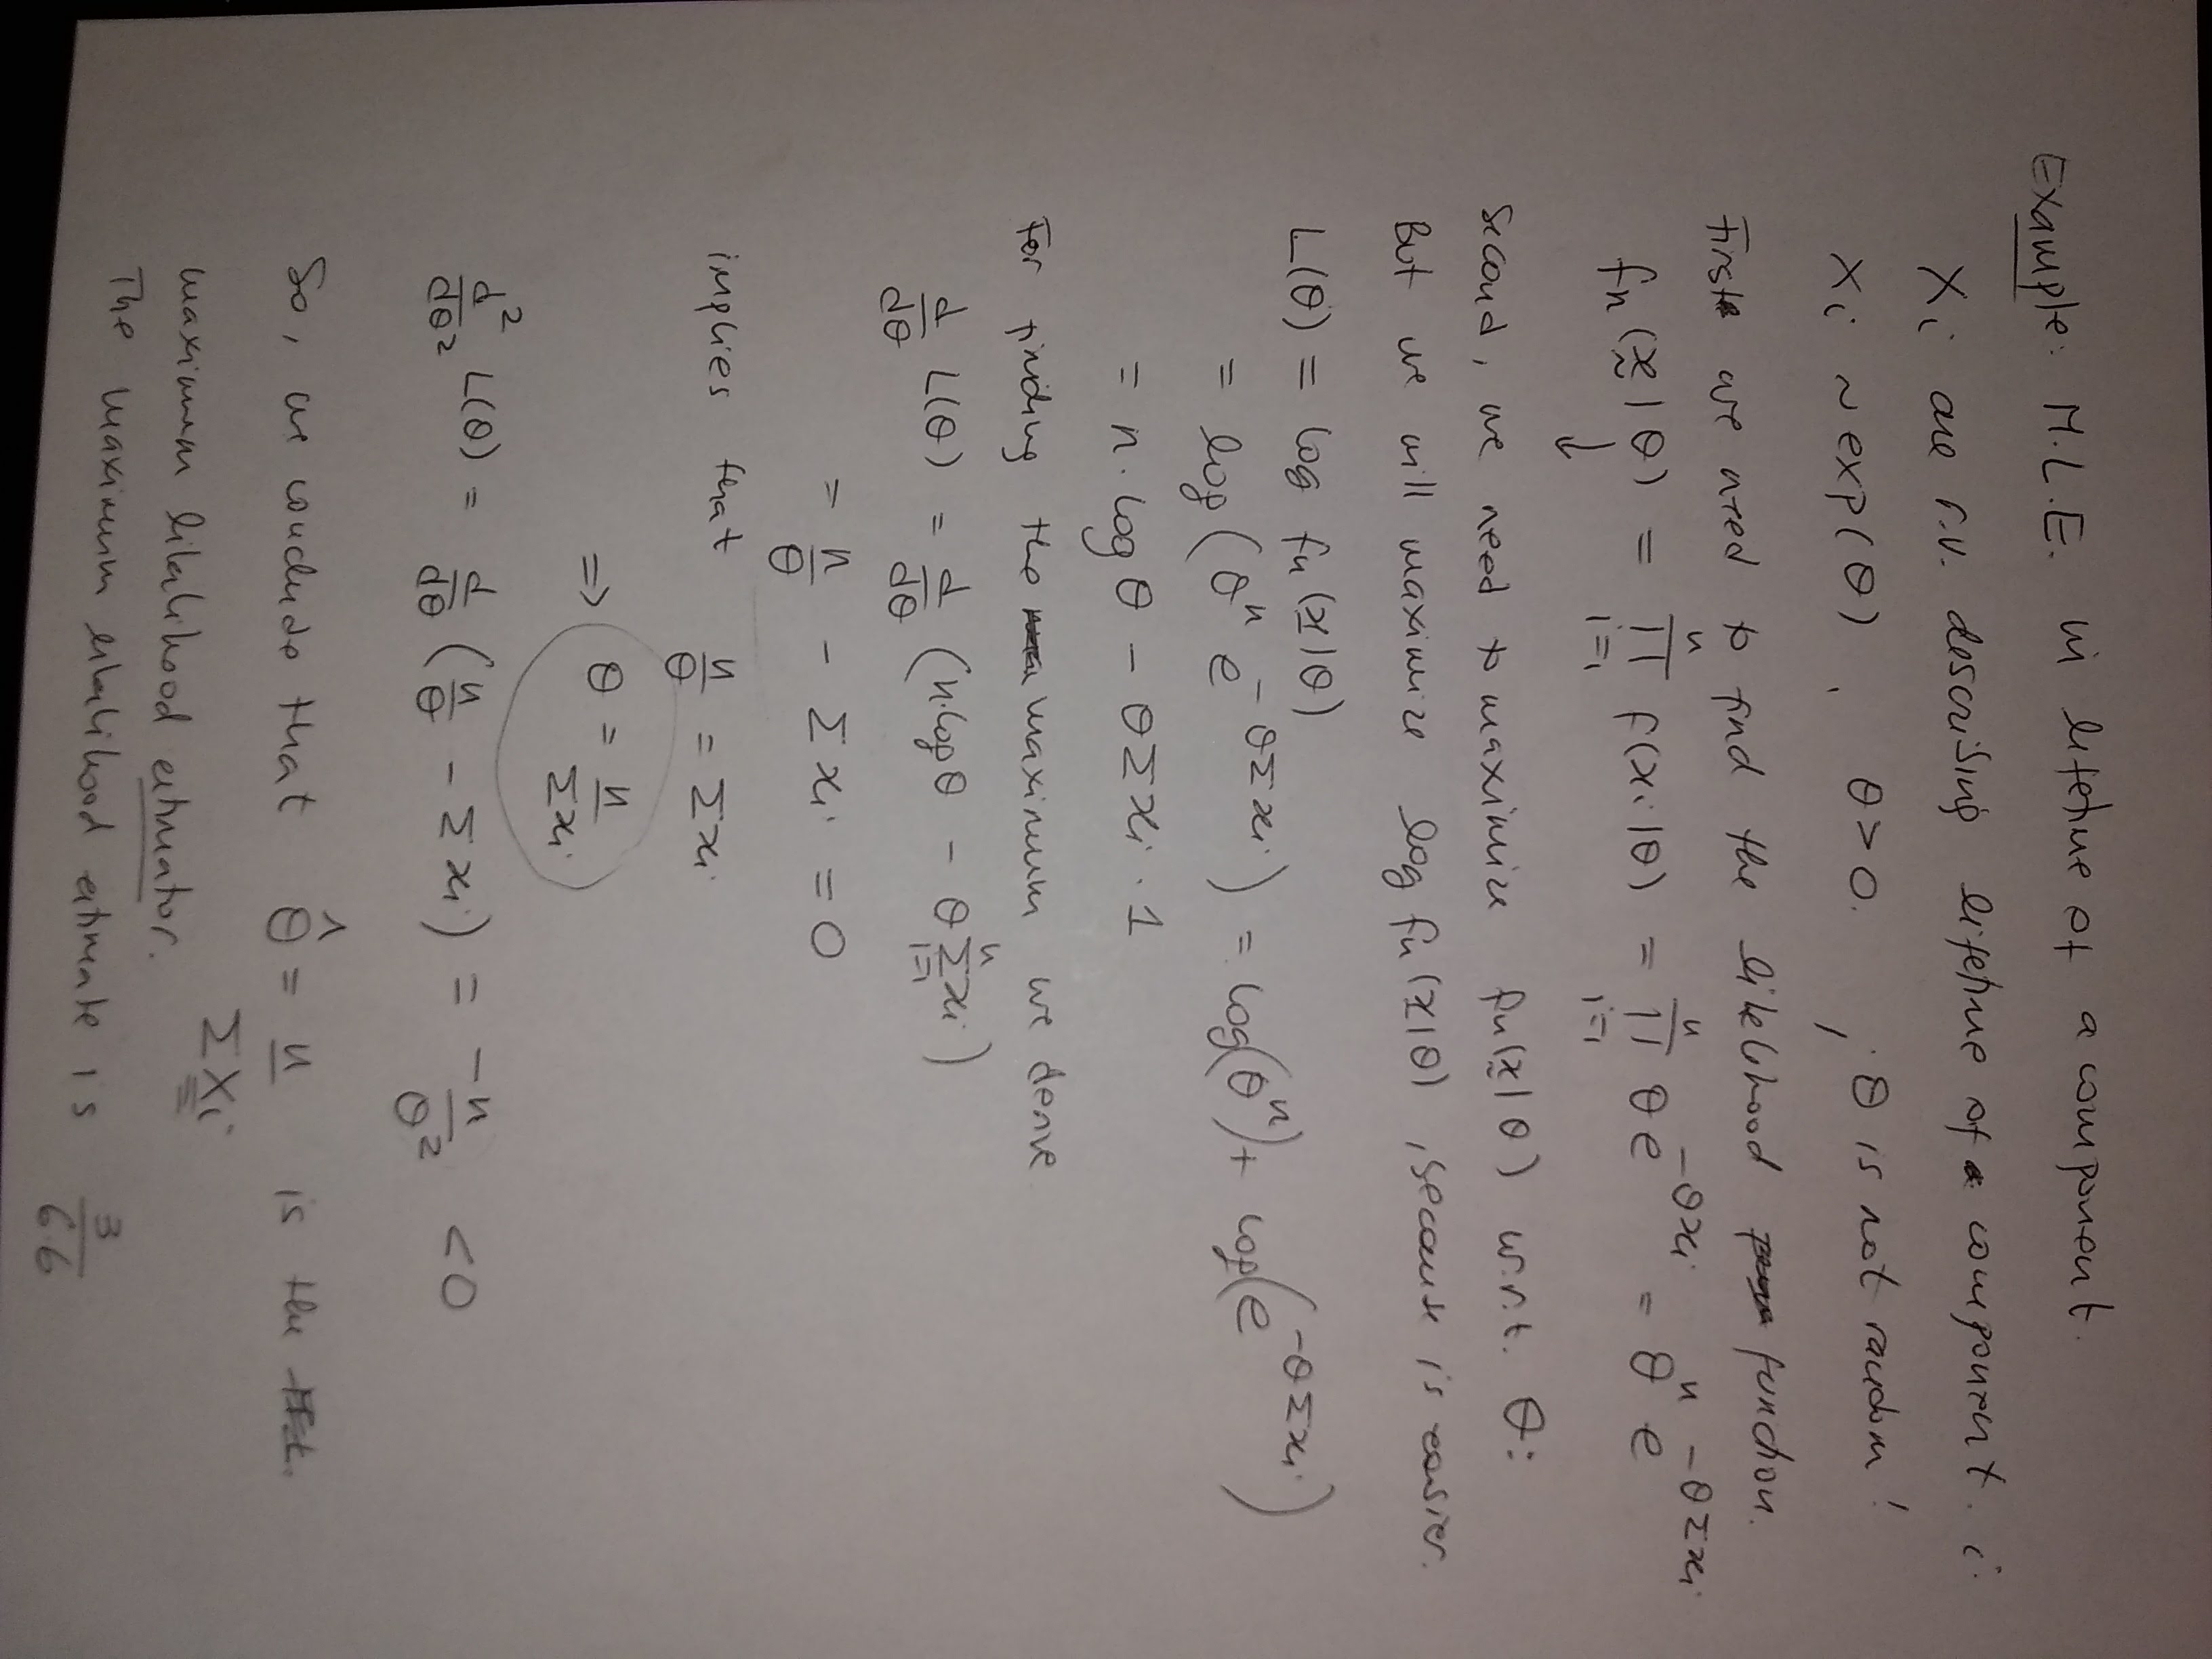 Example: M.L.E. in lifetime of a component.
Xi are r.v. describing lifetime of a component. i.
Xi ~ exp(θ), θ>0. , θ is not random!
First we need to find the likelihood function.
fn(x|θ) = ∏ⁿᵢ₌₁ f(xi|θ) = ∏ⁿᵢ₌₁ θe^(-θxi) = θⁿ e^(-θΣxi)
Second, we need to maximize fn(x|θ) w.r.t. θ:
But we will maximize log fn(x|θ), because is easier.
L(θ) = log fn(x|θ)
= log(θⁿ e^(-θΣxi)) = log(θⁿ) + log(e^(-θΣxi))
= n·logθ - θΣxi·1
For finding the maximum we derive
d/dθ L(θ) = d/dθ (n·logθ - θΣⁿᵢ₌₁xi)
= n/θ - Σxi = 0
implies that n/θ = Σxi
⇒ θ = n/Σxi
d²/dθ² L(θ) = d/dθ (n/θ - Σxi) = -n/θ² < 0
So, we conclude that θ̂ = n/ΣXi is the
maximum likelihood estimator.
The maximum likelihood estimate is 3/6.6